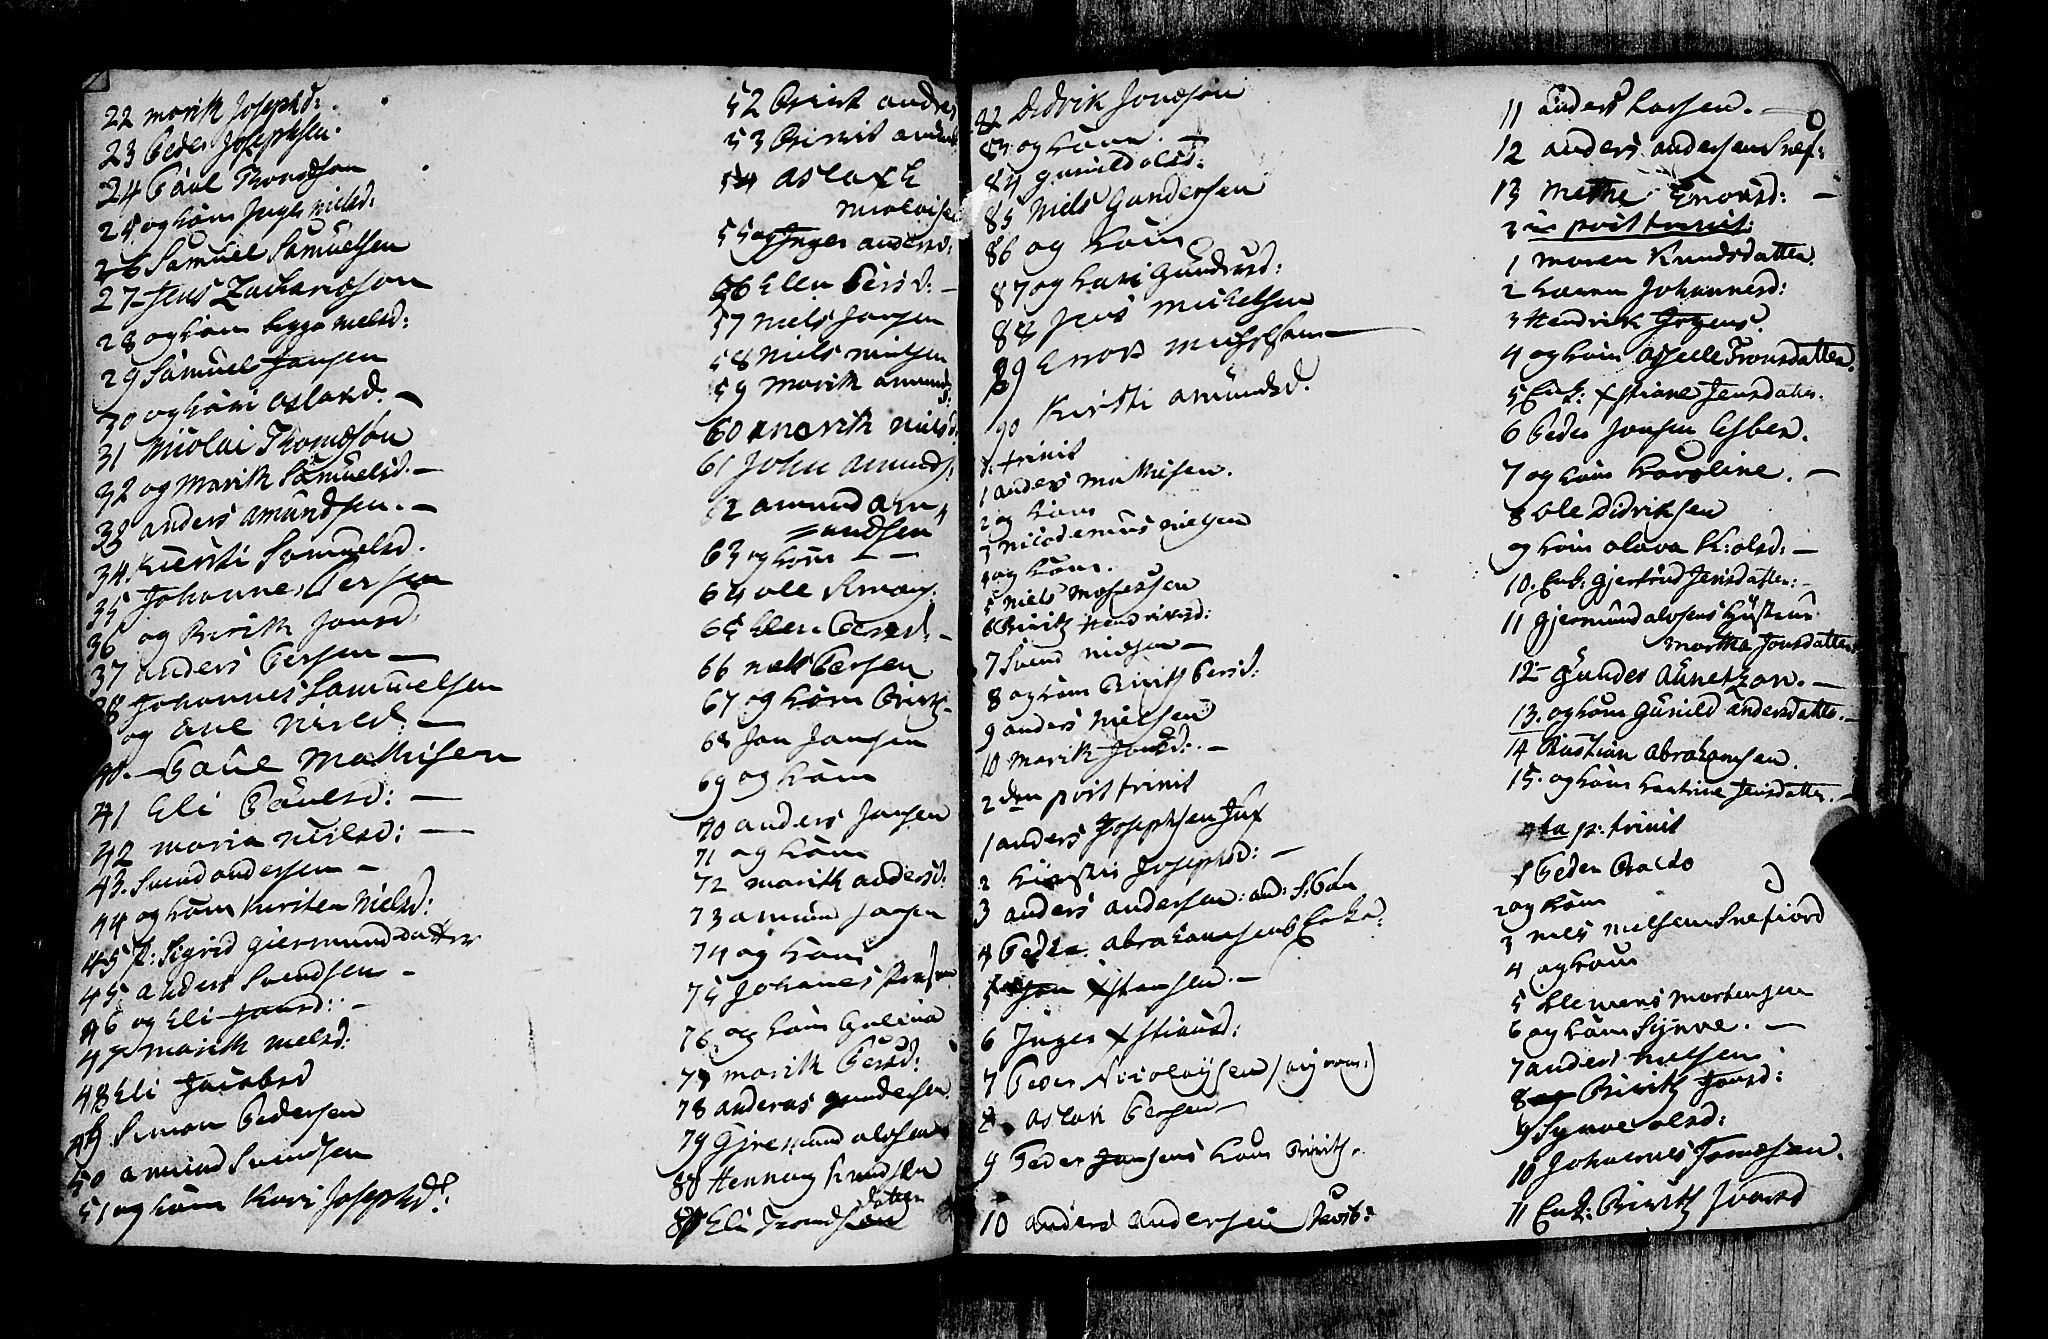 22 marith Josephsd:
23 Peder Josephsen.
24 Paul Thomdson
25 og kom Inger nielsd:
26 Samuel Samuelsen
27 Jens Zachariason
28 og kom nielsd:
29 Samuel Jansen
30 og kom aslaxd. —
31 Nicolai Thomdson
32 og Marith Samuelsd. —
33 anders amundsen. —
34 Kiersti Samuelsd.
35 Johannes Persen
36 og Birith Jonsd.
37 anders Persen —
38 Johannes Samuelsen
og ane Nielsd: —
40. — Paul Mathisen
41 Eli Paulsd: —
42 maria Nielsd: —
43. Svend andersen —
44 og kom Kirsten Nielsd:
45 P: Sigrid Giermunddatter
45 anders Svendsen —
46 og Eli Jonsd: —
47 marith nielsd:
48 Eli Jacobsd
49 Simon Pedersen
50 amund Svendsen
51 og kom Kari Josephsd:
52 Birit anders
53 Birit
54 aslax E
Nicolaise
55 og Inger andersd:
56 Ellen Persd: —
57 Niels Jansen
58 Niels nielsen
59 Marith amunds
d:
60 marith nielsd:
61 John amunds:
62 amund am
undsen
63 og kom — —
64 ole
65 Ellen Persd: —
66 niels Persen
67 og kom Birith
68 Jon Jansen
69 og kom
70 anders Jansen
71 og kom
72 marith andersd:
73 amund Jansen
74 og kom
75 Johanes
76 og kom Gulina
77 marith Persd:
78 anderas gundersen
79 Gjermund olvsen
80 Henning Knudsen
datter
81 Eli
82 Didrik Jonsson
83 og kom.
84 gunild olsd:
85 Niels Gundersen
86 og kom
87 og kari Gundersd:
88 Jens Michelsen
89 Enok Michelsen —
90 Kirsti amundsd.
: trinit
1 anders Mathisen.
2 og kom
3 nicodemus nielsen
4 og kom.
5 niels Mosessen
6 Birith Hendriksd:
7 Svend nielsen —
8 og kom Birith Persd:
9 anders Nielsen
10 marith Jonsd: —
2den post trinit
1 anders Josephsen
2 Kirsten Josephsd: —
3 anders andersen: and: S: Pan
4 Peder abrahamsens Enke:
5 Jon Xstansen. —
6 Inger Xstiansd:
7 Peder Nicolaysen /
8 aslak Persen —
9 Peder Jansens kom Birith.
10 anders andersen
11 anders Larsen. —
12 anders andersen Snef:
13 Methe Enoksd: —
3 post trinit:
1 maren Knudsdatter.
2 karen Johannesd:
3 Hendrik
4 og kom Tronsdatter.
5 Enk: Xstiane Jensdatter.
6 Peder Jonsen Esben.
7 og kom karoline. —
8 ole Didriksen
og kom olava K: olsd: —
10. Enk: gjertrud Jensdatter: —
11 gjermund olvsens hustru
martha Jonsdatter
12 — gunder —
13. og kom Gunild andersdatter. —
14 Kristian Abrahamsen.
15. og kom kathrine Jensdatter. —
4ta p: trinit
1 Peder
2 og kom
3 niels nielsen Snefiord
4 og kom
5 klemens mortensen
6 og kom Synve. —
7 anders nielsen
8 og Birith Jonsd:
9 Synve olsd:
10 Johannes
11 Enk: Birith Ivarsd